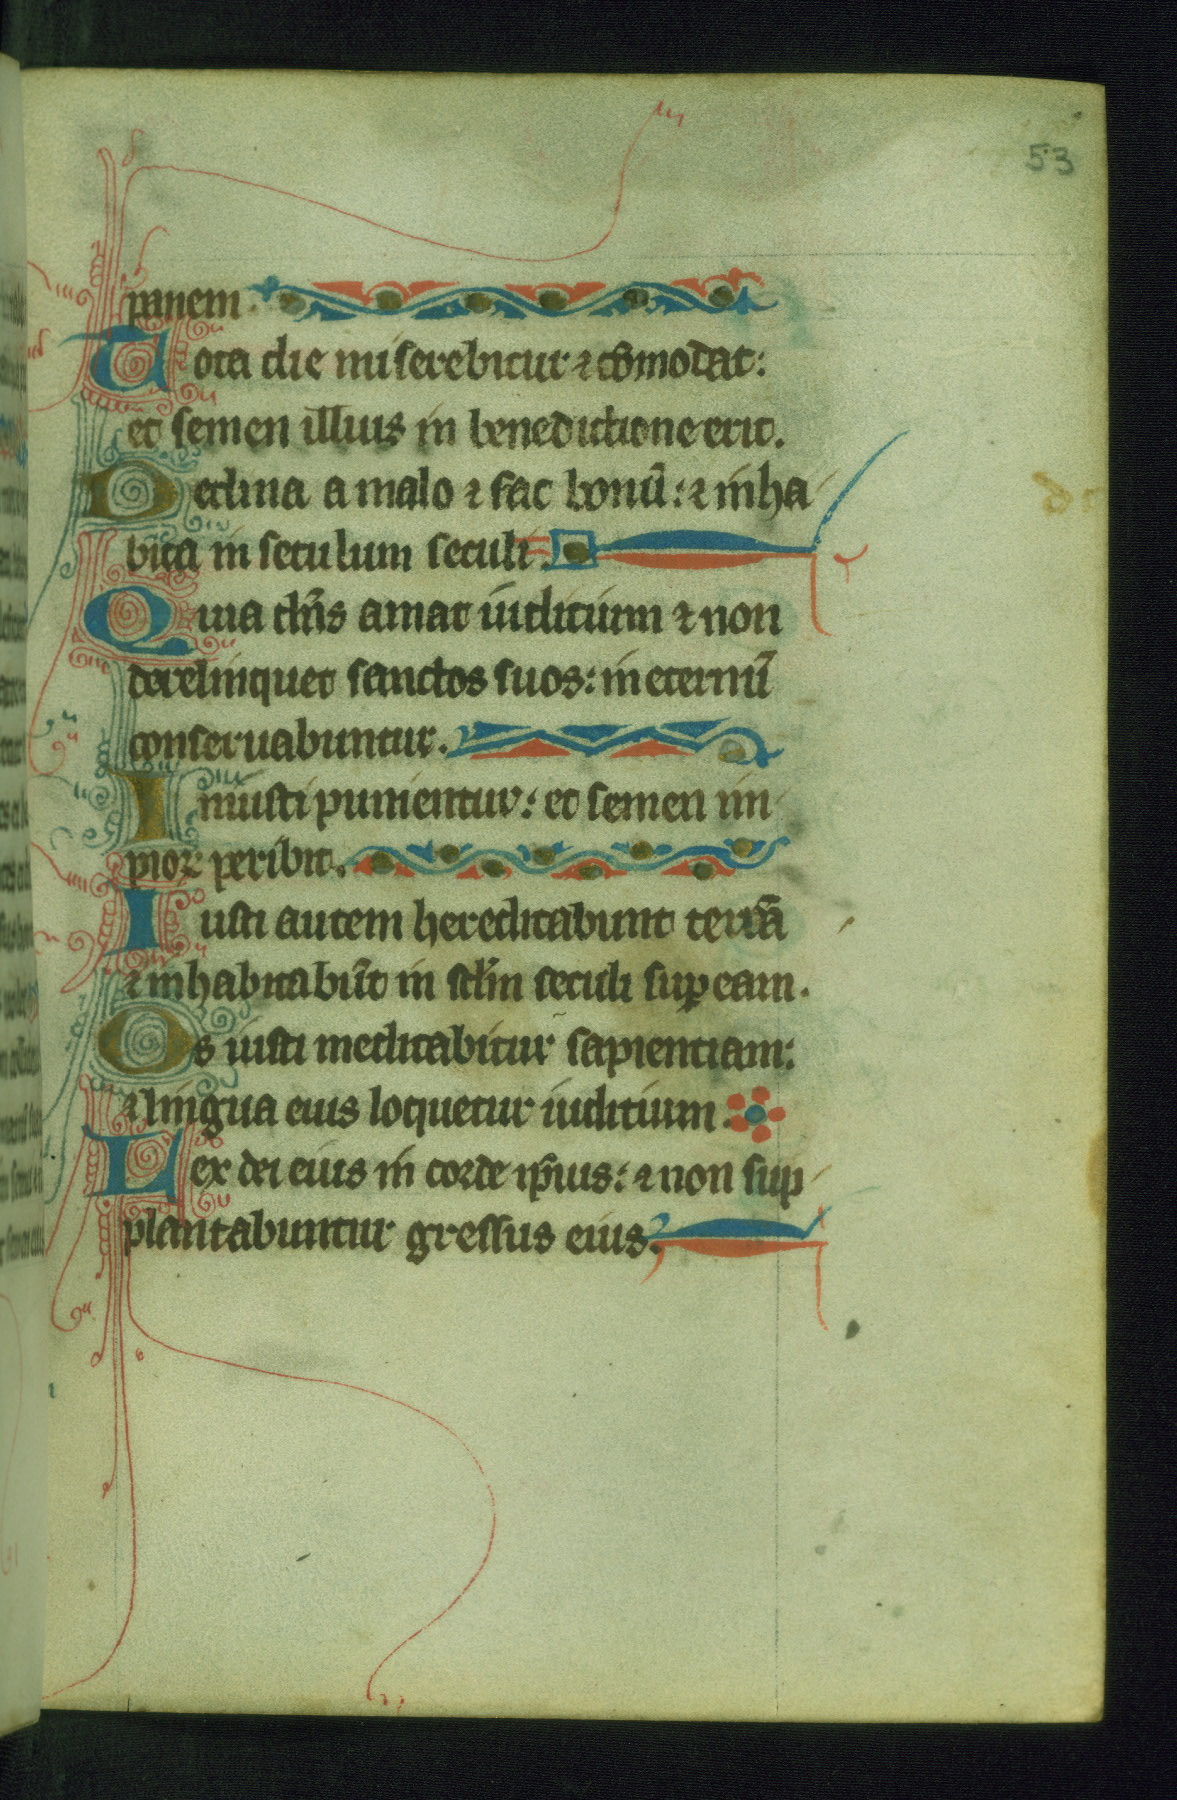 53
panem.
Tota die miserebitur ⁊ cõmodat:
et semen illius in benedictione erit.
Declina a malo ⁊ fac bonũ: ⁊ inha
bita in seculum seculi.
Quia dñs amat iudicium ⁊ non
derelinquet sanctos suos: in eternũ
conseruabuntur.
Iniusti punientur: et semen im
pioꝝ peribit.
Iusti autem hereditabunt terrã
⁊ inhabitabũt in sclm̃ seculi suꝑ eam.
Os iusti meditabitur sapientiam:
⁊ lingua eius loquetur iudicium.
Lex dei eius in corde ip̃ius: ⁊ non sup
plantabuntur gressus eius.